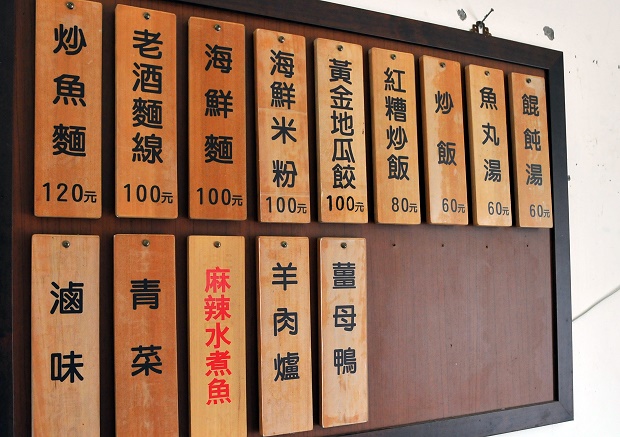 炒魚麵 120元
老酒麵線 100元
海鮮麵 100元
海鮮米粉 100元
黃金地瓜餃 100元
紅糟炒飯 80元
炒飯 60元
魚丸湯 60元
餛飩湯 60元
滷味
青菜
麻辣水煮魚
羊肉爐
薑母鴨